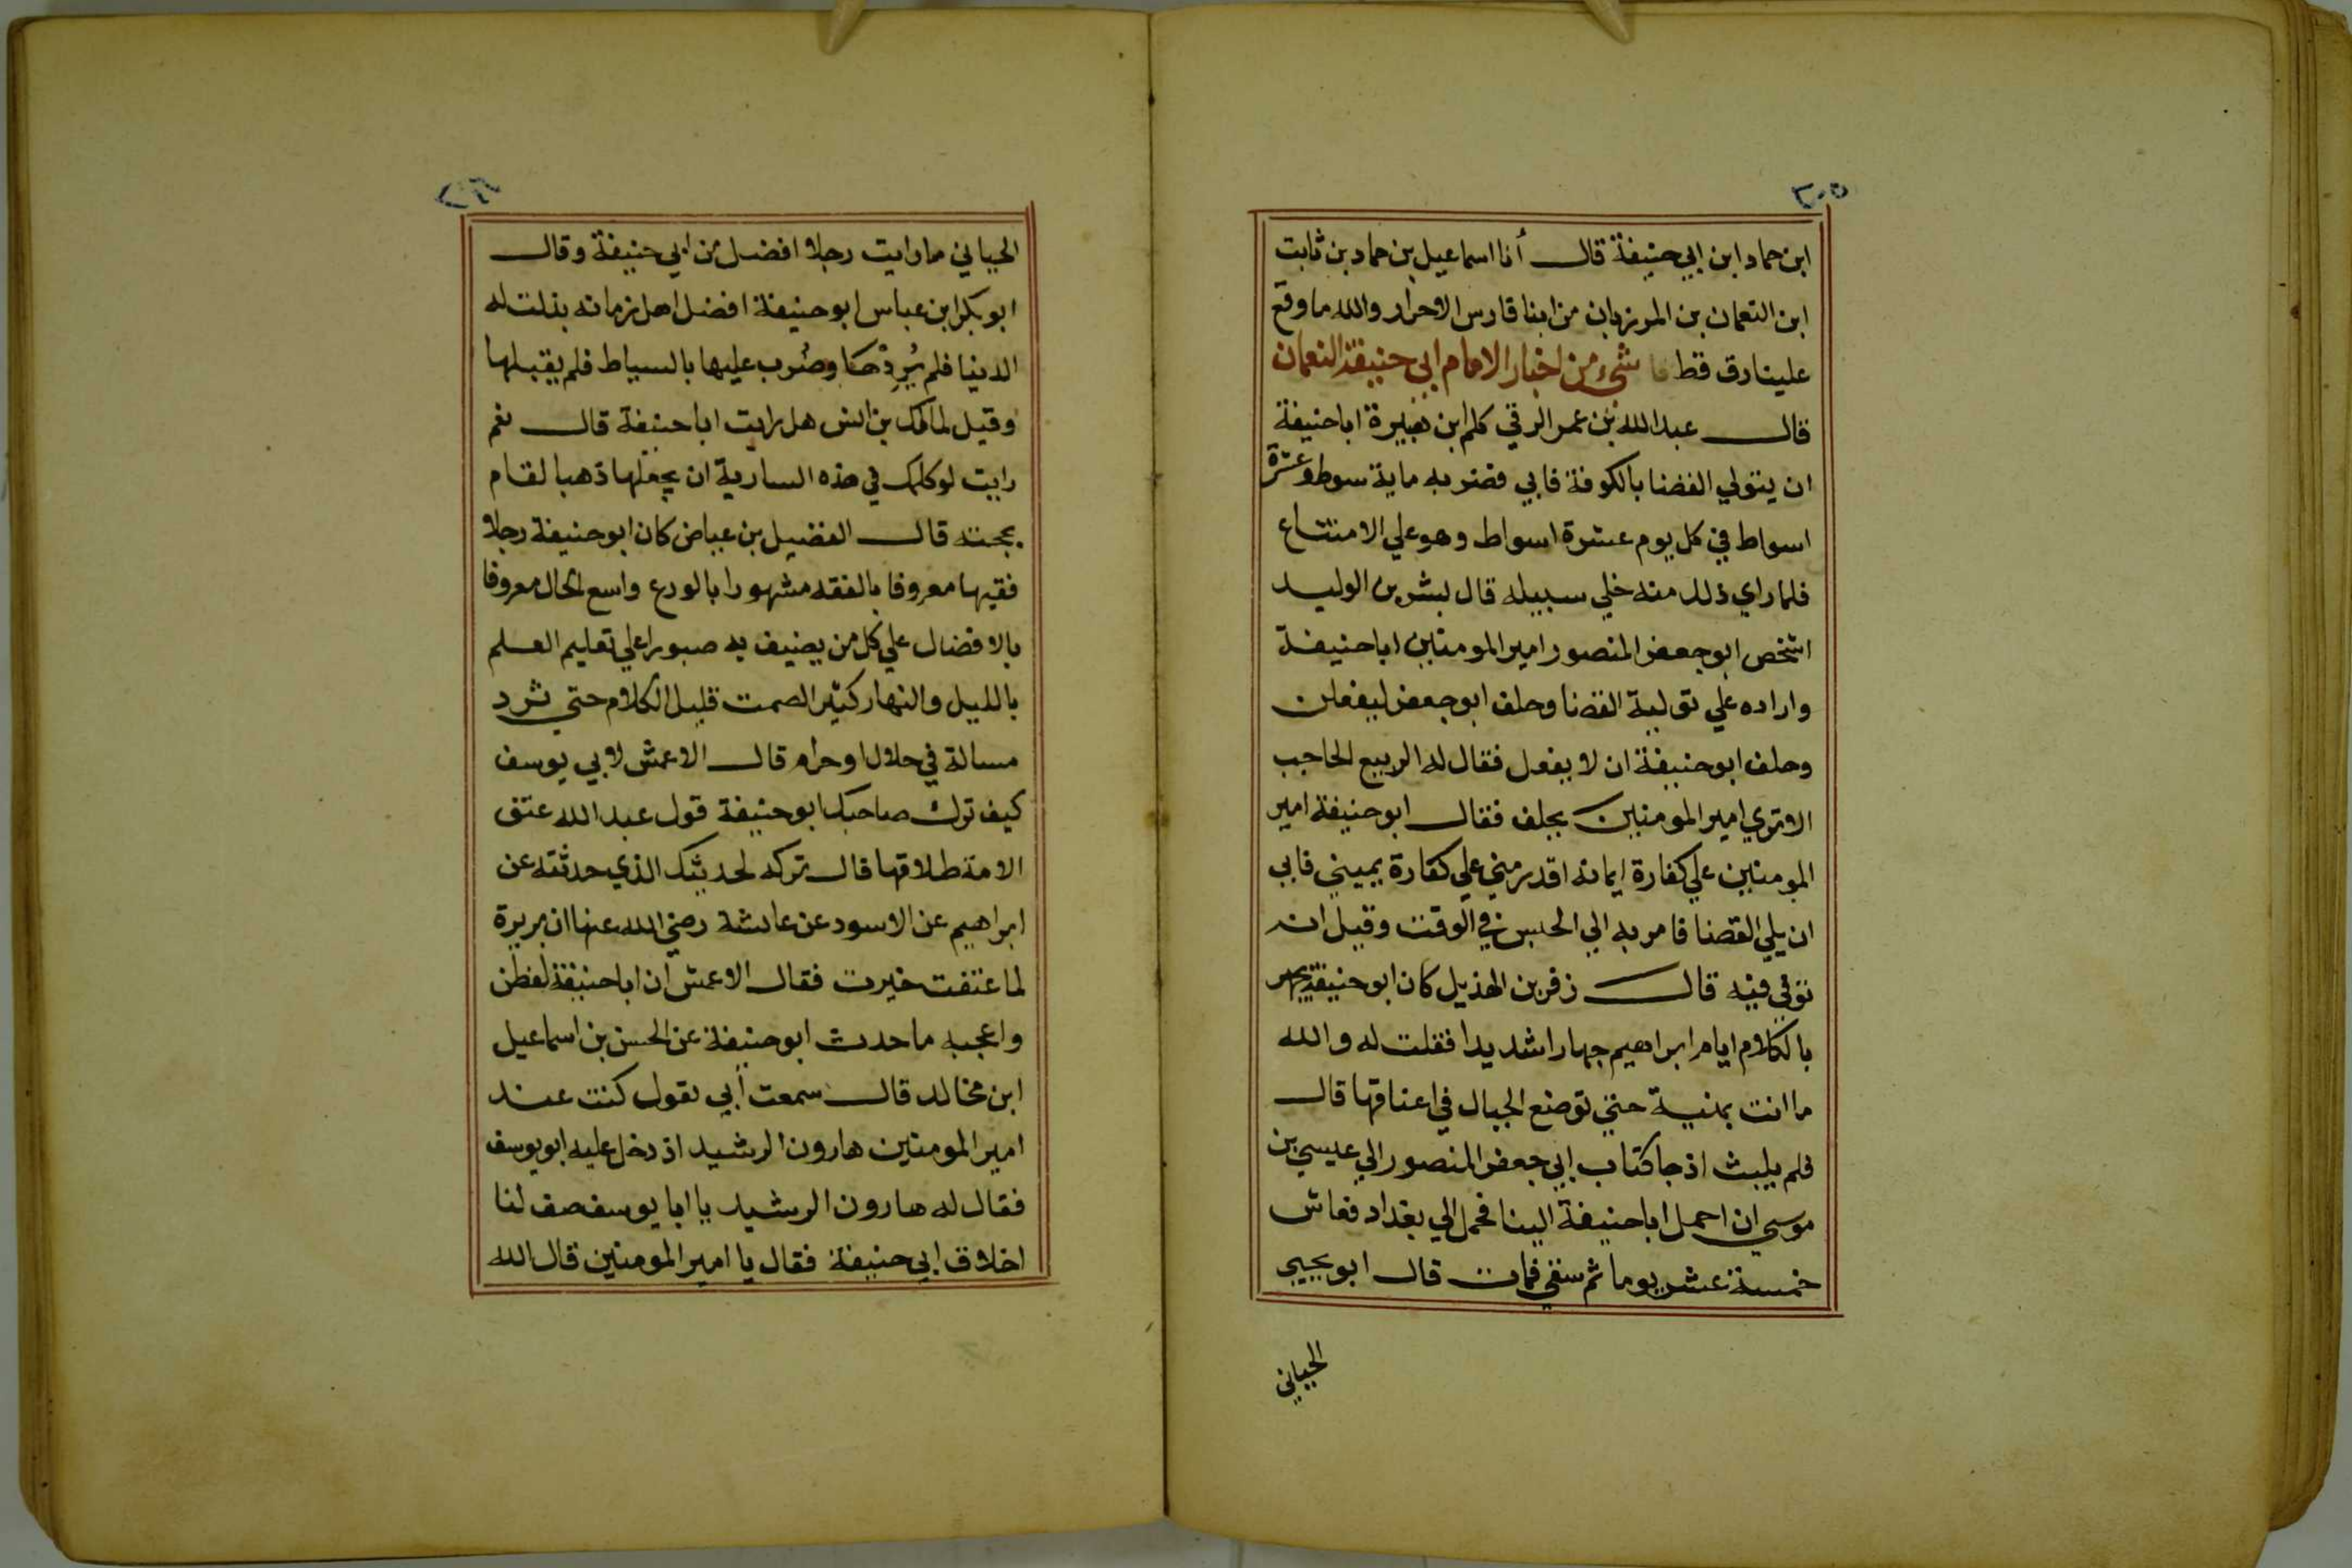 ٢٠٥
ابن حماد ابن ابي حنيفة قال أنا اسماعيل بن حماد بن ثابت
ابن النعمان بن المرزبان من ابنا فارس الاحرار والله ما وقع
علينا رق قط شيء من اخبار الامام ابي حنيفة النعمان
قال عبد الله بن عمر الرقي كلم ابن هبيرة ابا حنيفة
ان يتولي القضا بالكوفة فابي فضربه ماية سوط وعشرة
اسواط في كل يوم عشرة اسواط وهو علي الامتناع
فلما راي ذلك منه خلي سبيله قال بشر بن الوليد
اشخص ابو جعفر المنصور امير المومنين ابا حنيفة
واراده علي تولية القضا وحلف ابو جعفر ليفعلن
وحلف ابو حنيفة ان لا يفعل فقال له الربيع الحاجب
الا تري امير المومنين يحلف فقال ابو حنيفة امير
المومنين علي كفارة ايمانه اقدر مني علي كفارة يميني فابي
ان يلي القضا فامر به الي الحبس في الوقت وقيل انه
توفي فيه قال زفر بن الهذيل كان ابو حنيفة يجهر
بالكلام ايام ابراهيم جهارا شديدا فقلت له والله
ما انت بمنية حتي توضع الجبال في اعناقها قال
فلم يلبث اذ جا كتاب ابي جعفر المنصور الي عيسي بن
موسي ان احمل ابا حنيفة الينا فحمل الي بغداد فعاش
خمسة عشر يوما ثم سقي فمات قال ابو يحيي
الجياني
الجياني ما رايت رجلا افضل من ابي حنيفة وقال
ابو بكر ابن عباس ابو حنيفة افضل اهل زمانه بذلت له
الدنيا فلم يُرِدْها وضُرب عليها بالسياط فلم يقبلها
وقيل لمالك بن انس هل رايت ابا حنيفة قال نعم
رايت لو كلمك في هذه السارية ان يجعلها ذهبا لقام
بحجته قال الفضيل بن عياض كان ابو حنيفة رجلا
فقيها معروفا بالفقه مشهورا بالورع واسع الحال معروفا
بالافضال علي كل من يضيف به صبورا علي تعليم العلم
بالليل والنهار كثير الصمت قليل الكلام حتي ترد
مسالة في حلال او حرام قال الاعمش لابي يوسف
كيف ترك صاحبك ابو حنيفة قول عبد الله عتق
الامة طلاقها قال تركه لحديثك الذي حدثته عن
ابراهيم عن الاسود عن عايشة رضي الله عنها ان بريرة
لما عتقت خيرت فقال الاعمش ان ابا حنيفة لفطن
واعجبه ما حدث ابو حنيفة عن الحسن بن اسماعيل
ابن مخالد قال سمعت أبي يقول كنت عند
امير المومنين هارون الرشيد اذ دخل عليه ابو يوسف
فقال له هارون الرشيد يا ابا يوسف صف لنا
اخلاق ابي حنيفة فقال يا امير المومنين قال الله